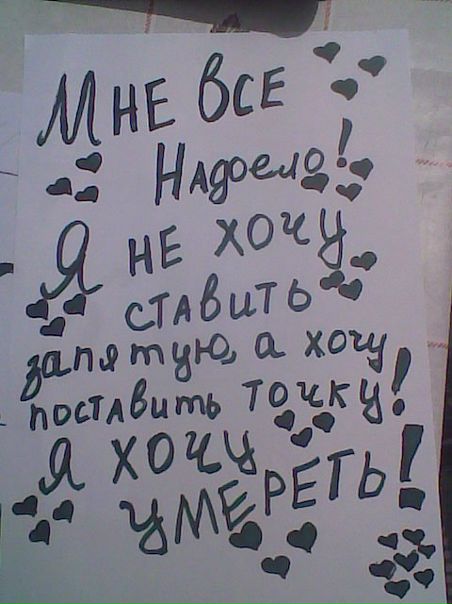 Мне все
Надоело!
Я не хочу
ставить
запятую, а хочу
поставить точку!
Я хочу
умереть!